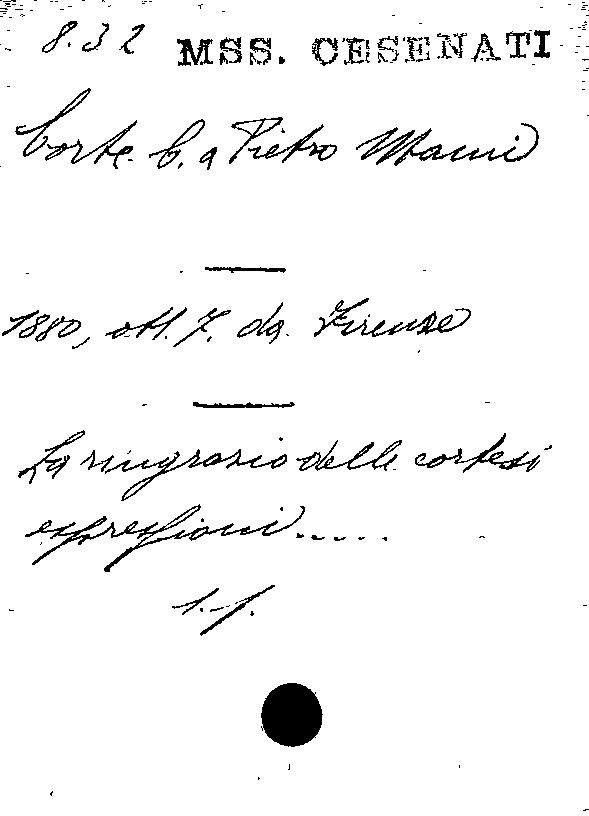 8.32 MSS. CESENATI
Corte C. a Pietro Mami
1880, ott. 7. da Firenze
La ringrazio delle cortesi
espressioni.....
1. f.